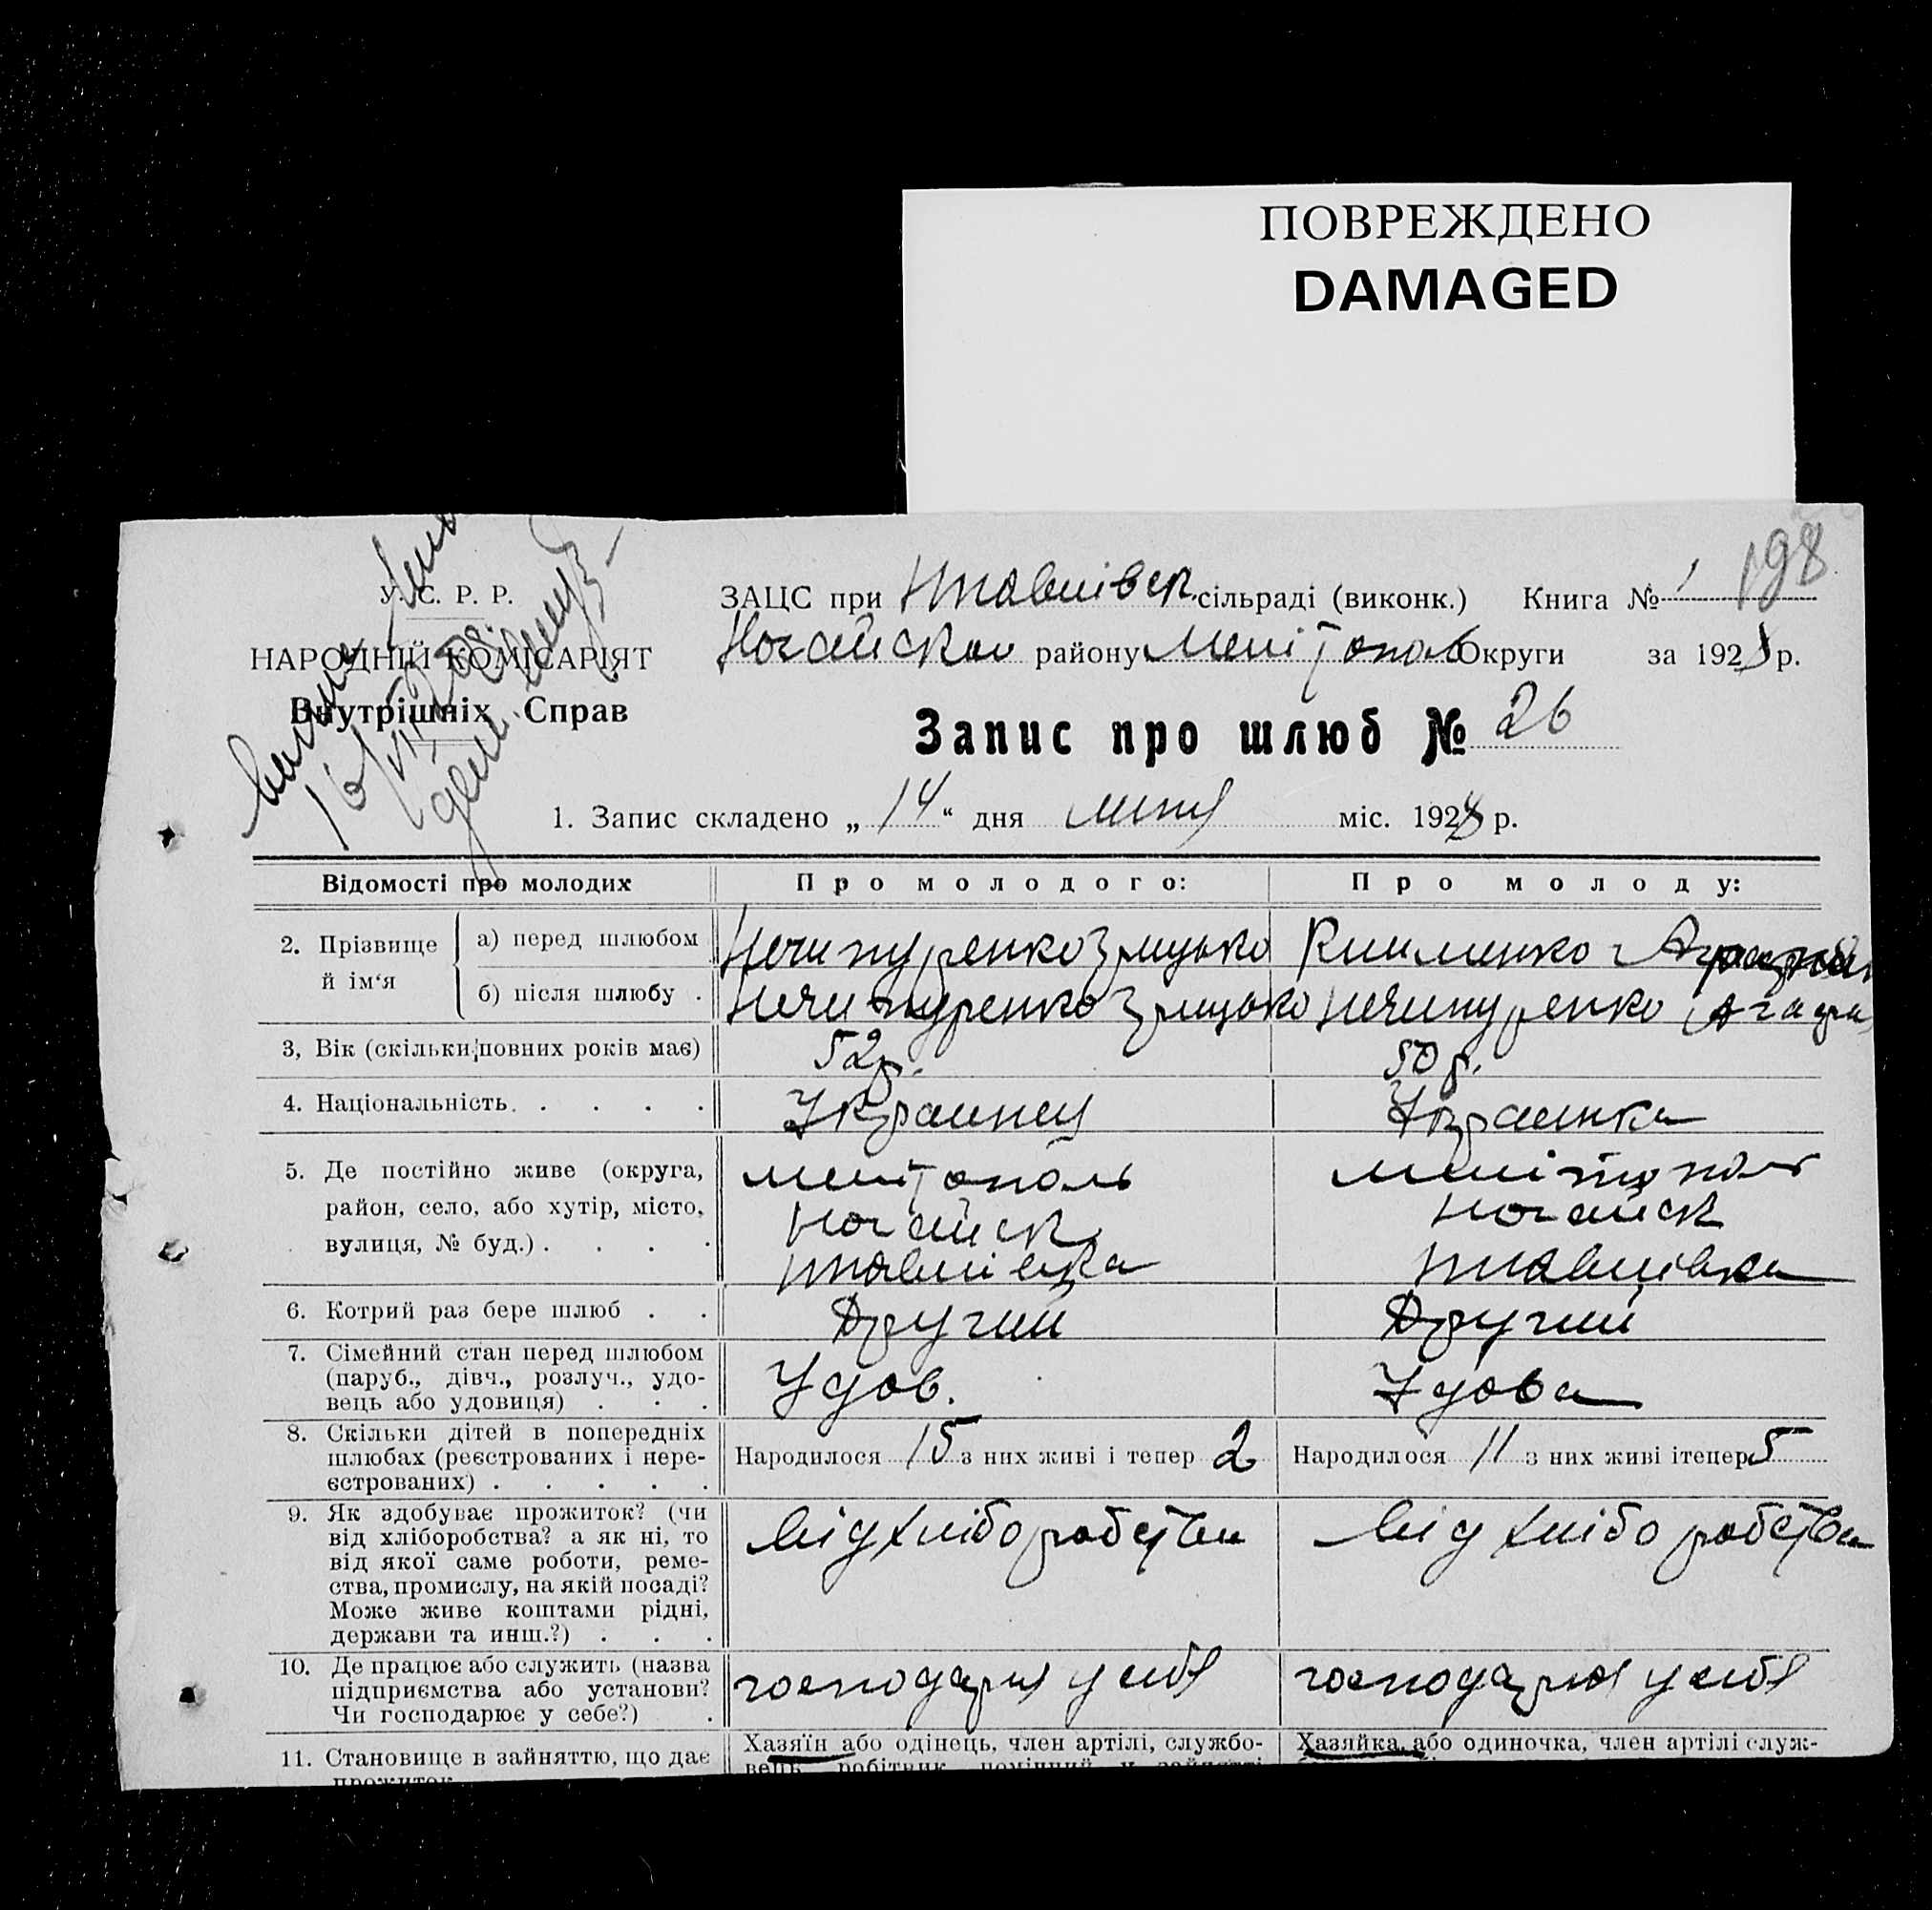 ПОВРЕЖДЕНО
DAMAGED
198
У. С. Р. Р.
НАРОДНІЙ КОМІСАРІЯТ
Внутрішніх Справ
ЗАЦС при сільраді (виконк.) Книга № 1
Ногайськ району Меліт округи за 1928 р.
Запис про шлюб № 26
1. Запис складено „14“ дня липня міс. 1928 р.
Відомості про молодих
Про молодого:
Про молоду:
2. Прізвище й ім'я
а) перед шлюбом
Нечипуренко Грицько
Клименко
б) після шлюбу .
Нечипуренко Грицько
Нечипуренко
3, Вік (скільки повних років має)
52 р.
50 р.
4. Національність . . . . .
Украинец
Украинка
5. Де постійно живе (округа,
район, село, або хутір, місто,
вулиця, № буд.) . . . .
Мелітополь
Ногайськ
Мелітополь
Ногайськ
6. Котрий раз бере шлюб . .
Другий
Другий
7. Сімейний стан перед шлюбом
(паруб., дівч., розлуч., удо-
вець або удовиця) . . .
Удов.
Удова
8. Скільки дітей в попередніх
шлюбах (реєстрованих і нере-
єстрованих) . . . . .
Народилося 15 з них живі і тепер 2
Народилося 11 з них живі ітепер 5
9. Як здобуває прожиток? (чи
від хліборобства? а як ні, то
від якої саме роботи, реме-
ства, промислу, на якій посаді?
Може живе коштами рідні,
держави та инш.?) . . .
Від хліборобства
Від хліборобства
10. Де працює або служить (назва
підприємства або установи?
Чи господарює у себе?) .
господарює у себе
господарює у себе
11. Становище в зайняттю, що дає
прожиток
Хазяїн або одінець, член артілі, службо-
вець, робітник, помічний у зайнятті
Хазяйка, або одиночка, член артілі служ-